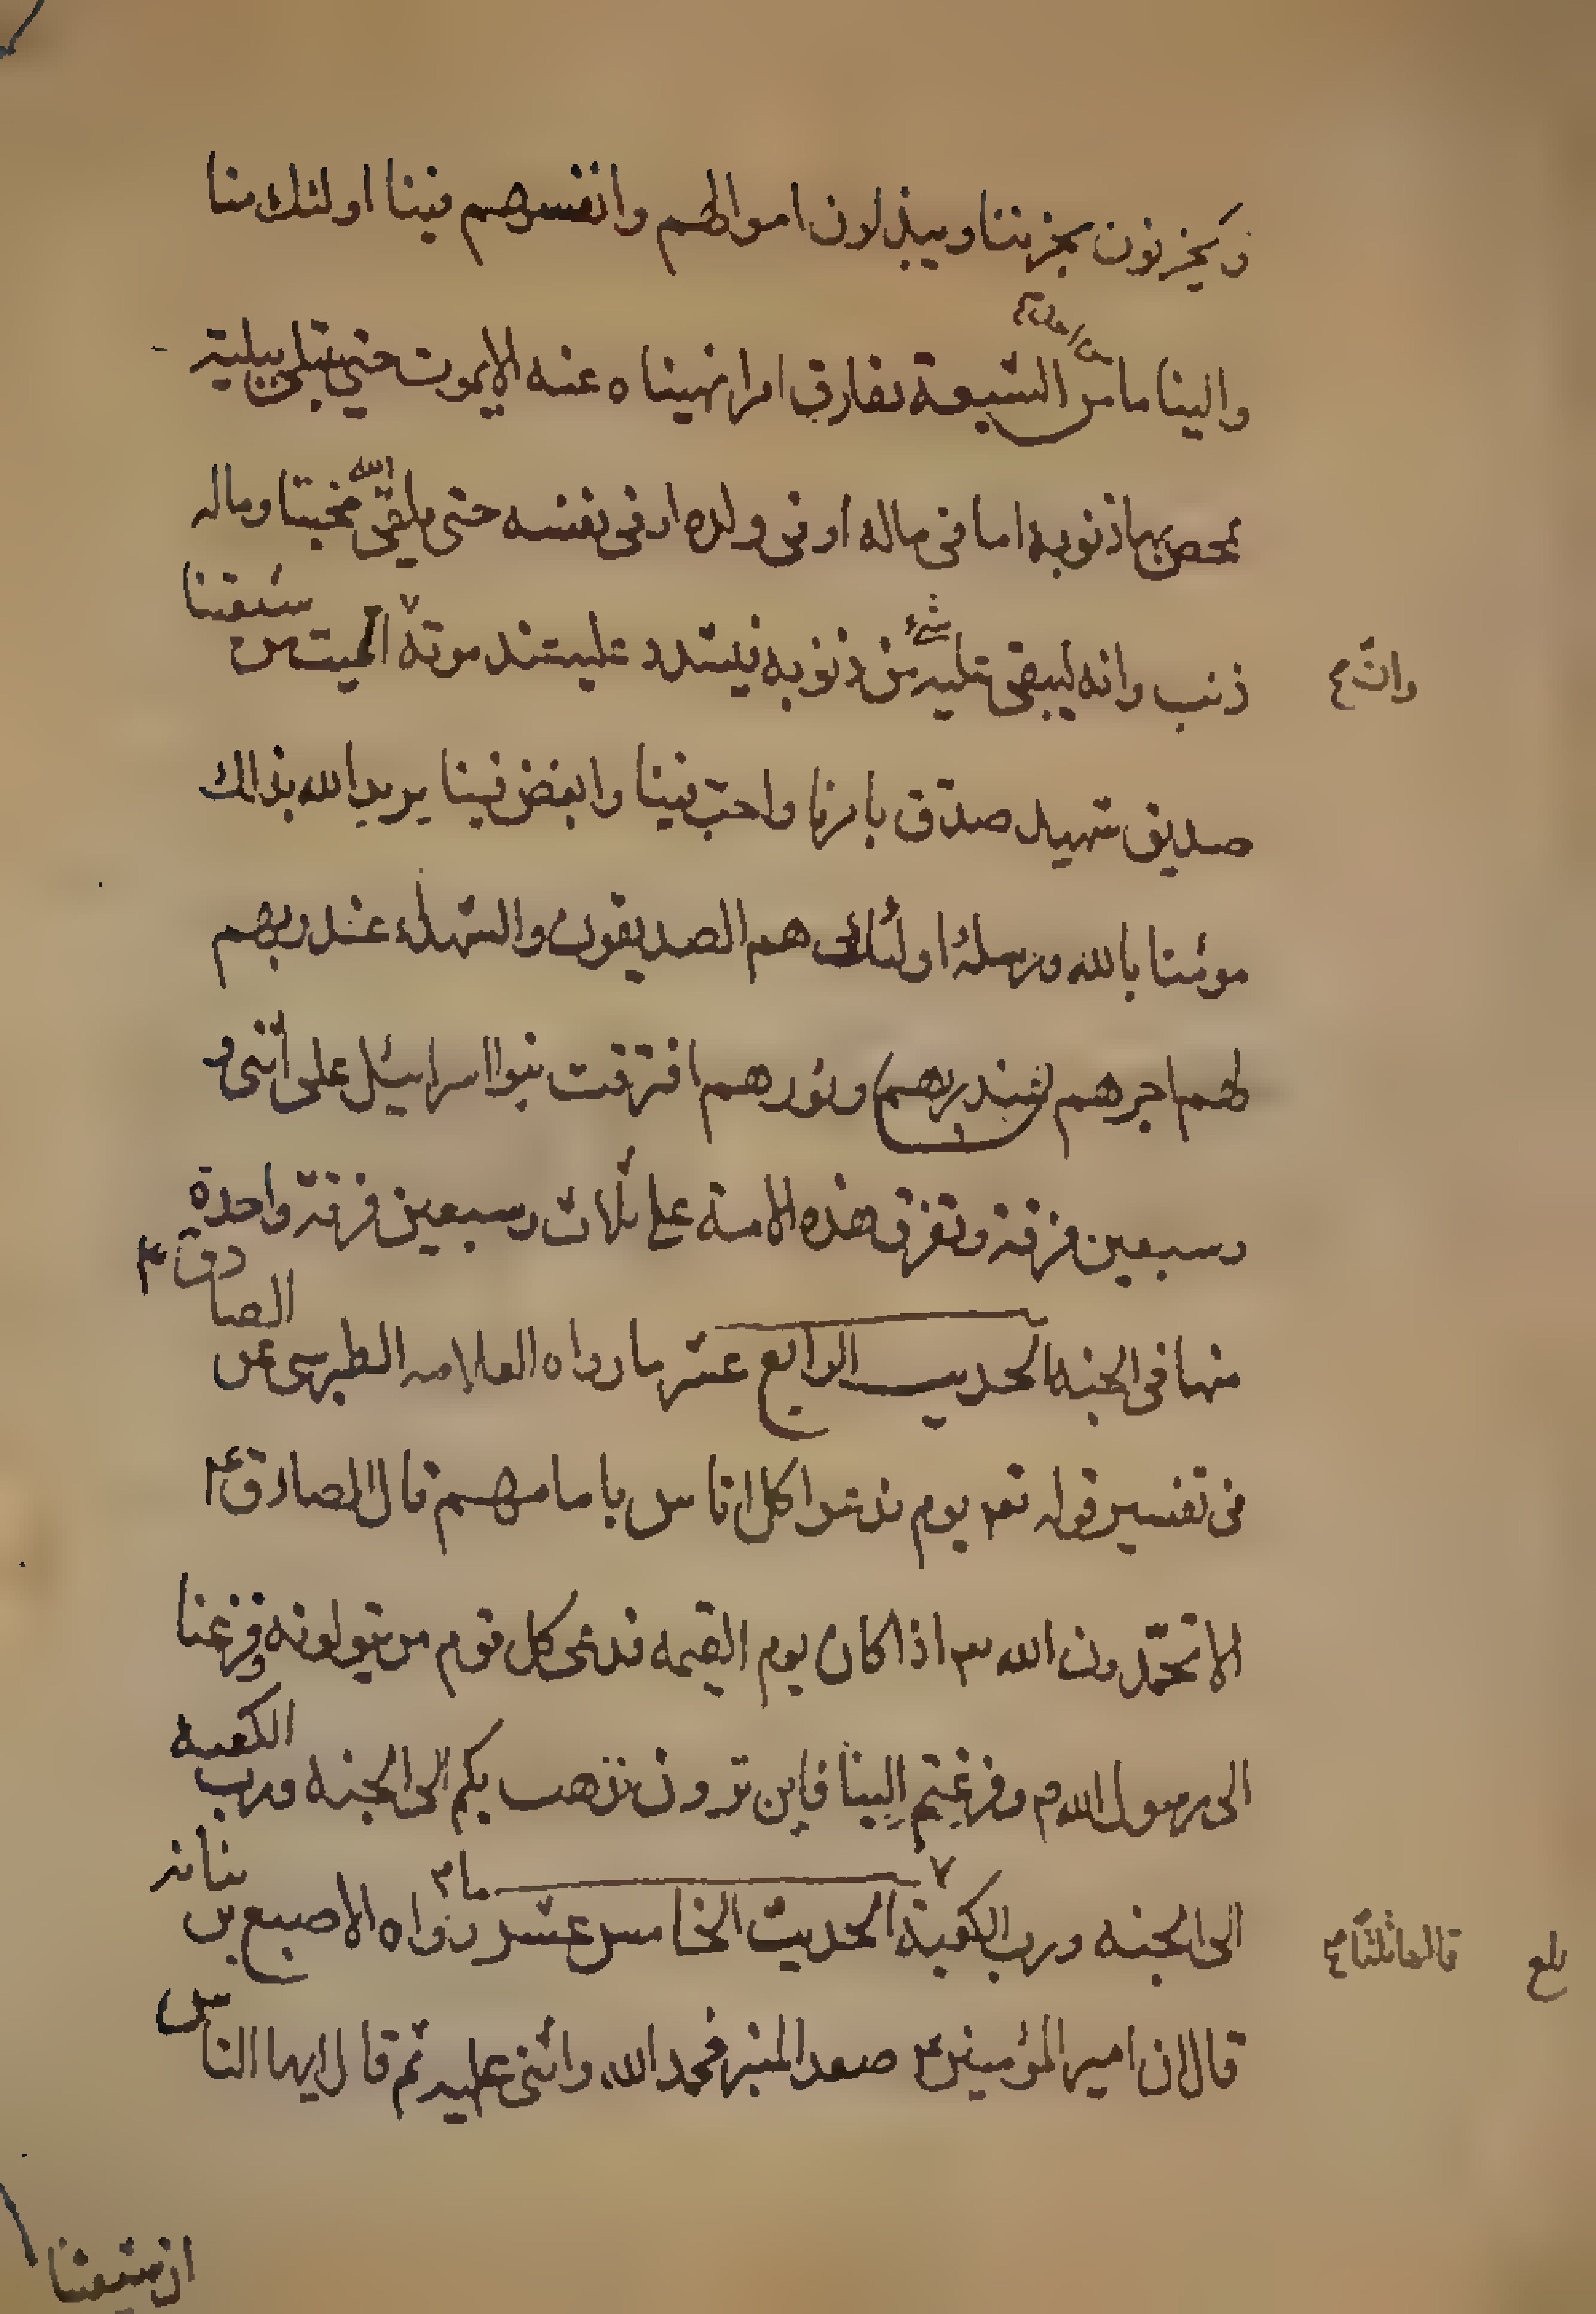 ويحزنون بحزننا ويبذلون اموالهم وانفسهم فينا اولئك منا
من احد
والينا ما من الشيعة يفارق امرا نهيناه عنه الا يموت حتى يبتلى ببلية
يمحص بها ذنوبه اما فى ماله او فى ولده او فى نفسه حتى يلقى الله محبنا وماله
ذنب وانه ليبقى عليه شىء من ذنوبه فيشدد عليه عند موته الميت من شيعتنا
وان
صديق شهيد صدق بامرنا واحب فينا وابغض فينا يريد الله بذالك
مومنا بالله ورسله اولئك هم الصديقون والشهداء عند ربهم
لهم اجرهم عند ربهم ونورهم افترقت بنوا اسرائيل على اثنى و
وسبعين فرقة وتفرق هذه الامة على ثلاث وسبعين فرقة واحدة
منها فى الجنة الحديث الرابع عشر ما رواه العلامه الطبرسى عن الصادق ع
فى تفسير قوله تعم يوم ندعوا كل اناس بامامهم قال الصادق ع
الا تحمدون الله اذا كان يوم القيمه فدعى كل قوم من يتولونه وفزعنا
الى رسول الله م وفزعتم الينا فاين ترون نذهب بكم الى الجنه ورب الكعبه
الى الجنه ورب الكعبة الحديث الخامس عشر ما رواه الاصبغ بن نباته
قالها ثلثا
بلغ
قال ان امير المؤمنين ع صعد المنبر فحمد الله واثنى عليه ثم قال ايها الناس
ان شيعتنا